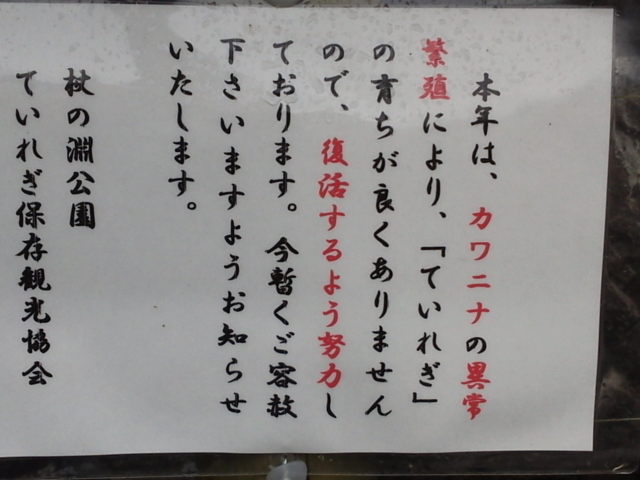 本年は、カワニナの異常
繁殖により、「ていれぎ」
の育ちが良くありません
ので、復活するよう努力し
ております。今暫くご容赦
下さいますようお知らせ
いたします。
杖の淵公園
ていれぎ保存観光協会